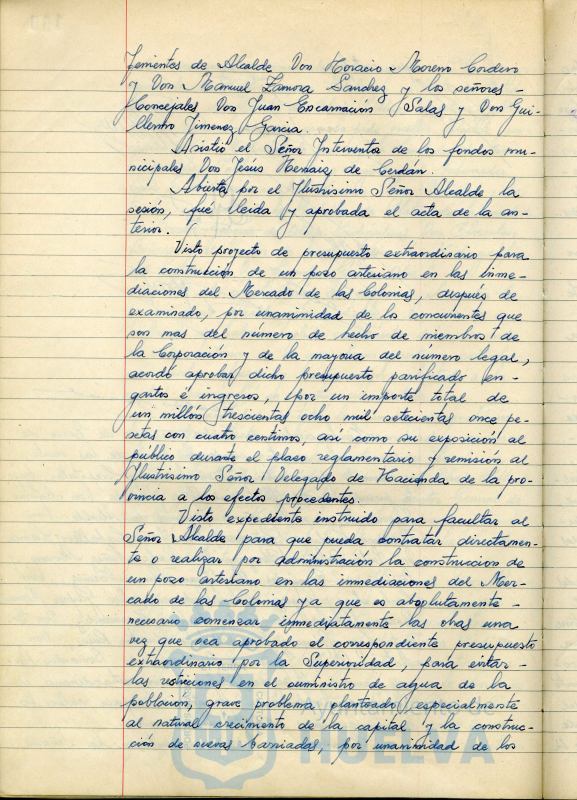 Tenientes de Alcalde Don Horacio Moreno Cordero
y Don Manuel Zamora Sanchez y los señores -
Concejales Don Juan Encarnación Salas y Don Gui-
llermo Jimenez Garcia.
Asistió el Señor Interventor de los fondos mu-
nicipales Don Jesús Hernaiz de Cerdán.
Abierta por el Ilustrisimo Señor Alcalde la
sesión, fué lleida y aprobada el acta de la an-
terior.
Visto proyecto de presupuesto extraordinario para
la construcción de un pozo artesiano en las inme-
diaciones del Mercado de las Colonias, después de
examinado, por unanimidad de los concurrentes que
son mas del número de hecho de miembros de
la Corporación y de la mayoria del numero legal,
acordó aprobar dicho presupuesto parificado en -
gastos é ingresos, por un importe total de
un millón trescientas ocho mil setecientas once pe-
setas con cuatro centimos, así como su exposición al
público durante el plazo reglamentario y remisión al
Ilustrisimo Señor Delegado de Hacienda de la pro-
vincia a los efectos procedentes.
Visto expediente instruido para facultar al
Señor Alcalde para que pueda contratar directamen-
te o realizar por administración la construcción de
un pozo artesiano en las inmediaciones del Mer-
cado de las Colonias ya que es absolutamente -
necesario comenzar inmediatamente las obras una
vez que sea aprobado el correspondiente presupuesto
extraordinario por la Superioridad, para evitar -
las restricciones en el suministro de agua de la
población, grave problema planteado especialmente
al natural crecimiento de la capital y la construc-
ción de nuevas barriadas, por unanimidad de los
HUELVA